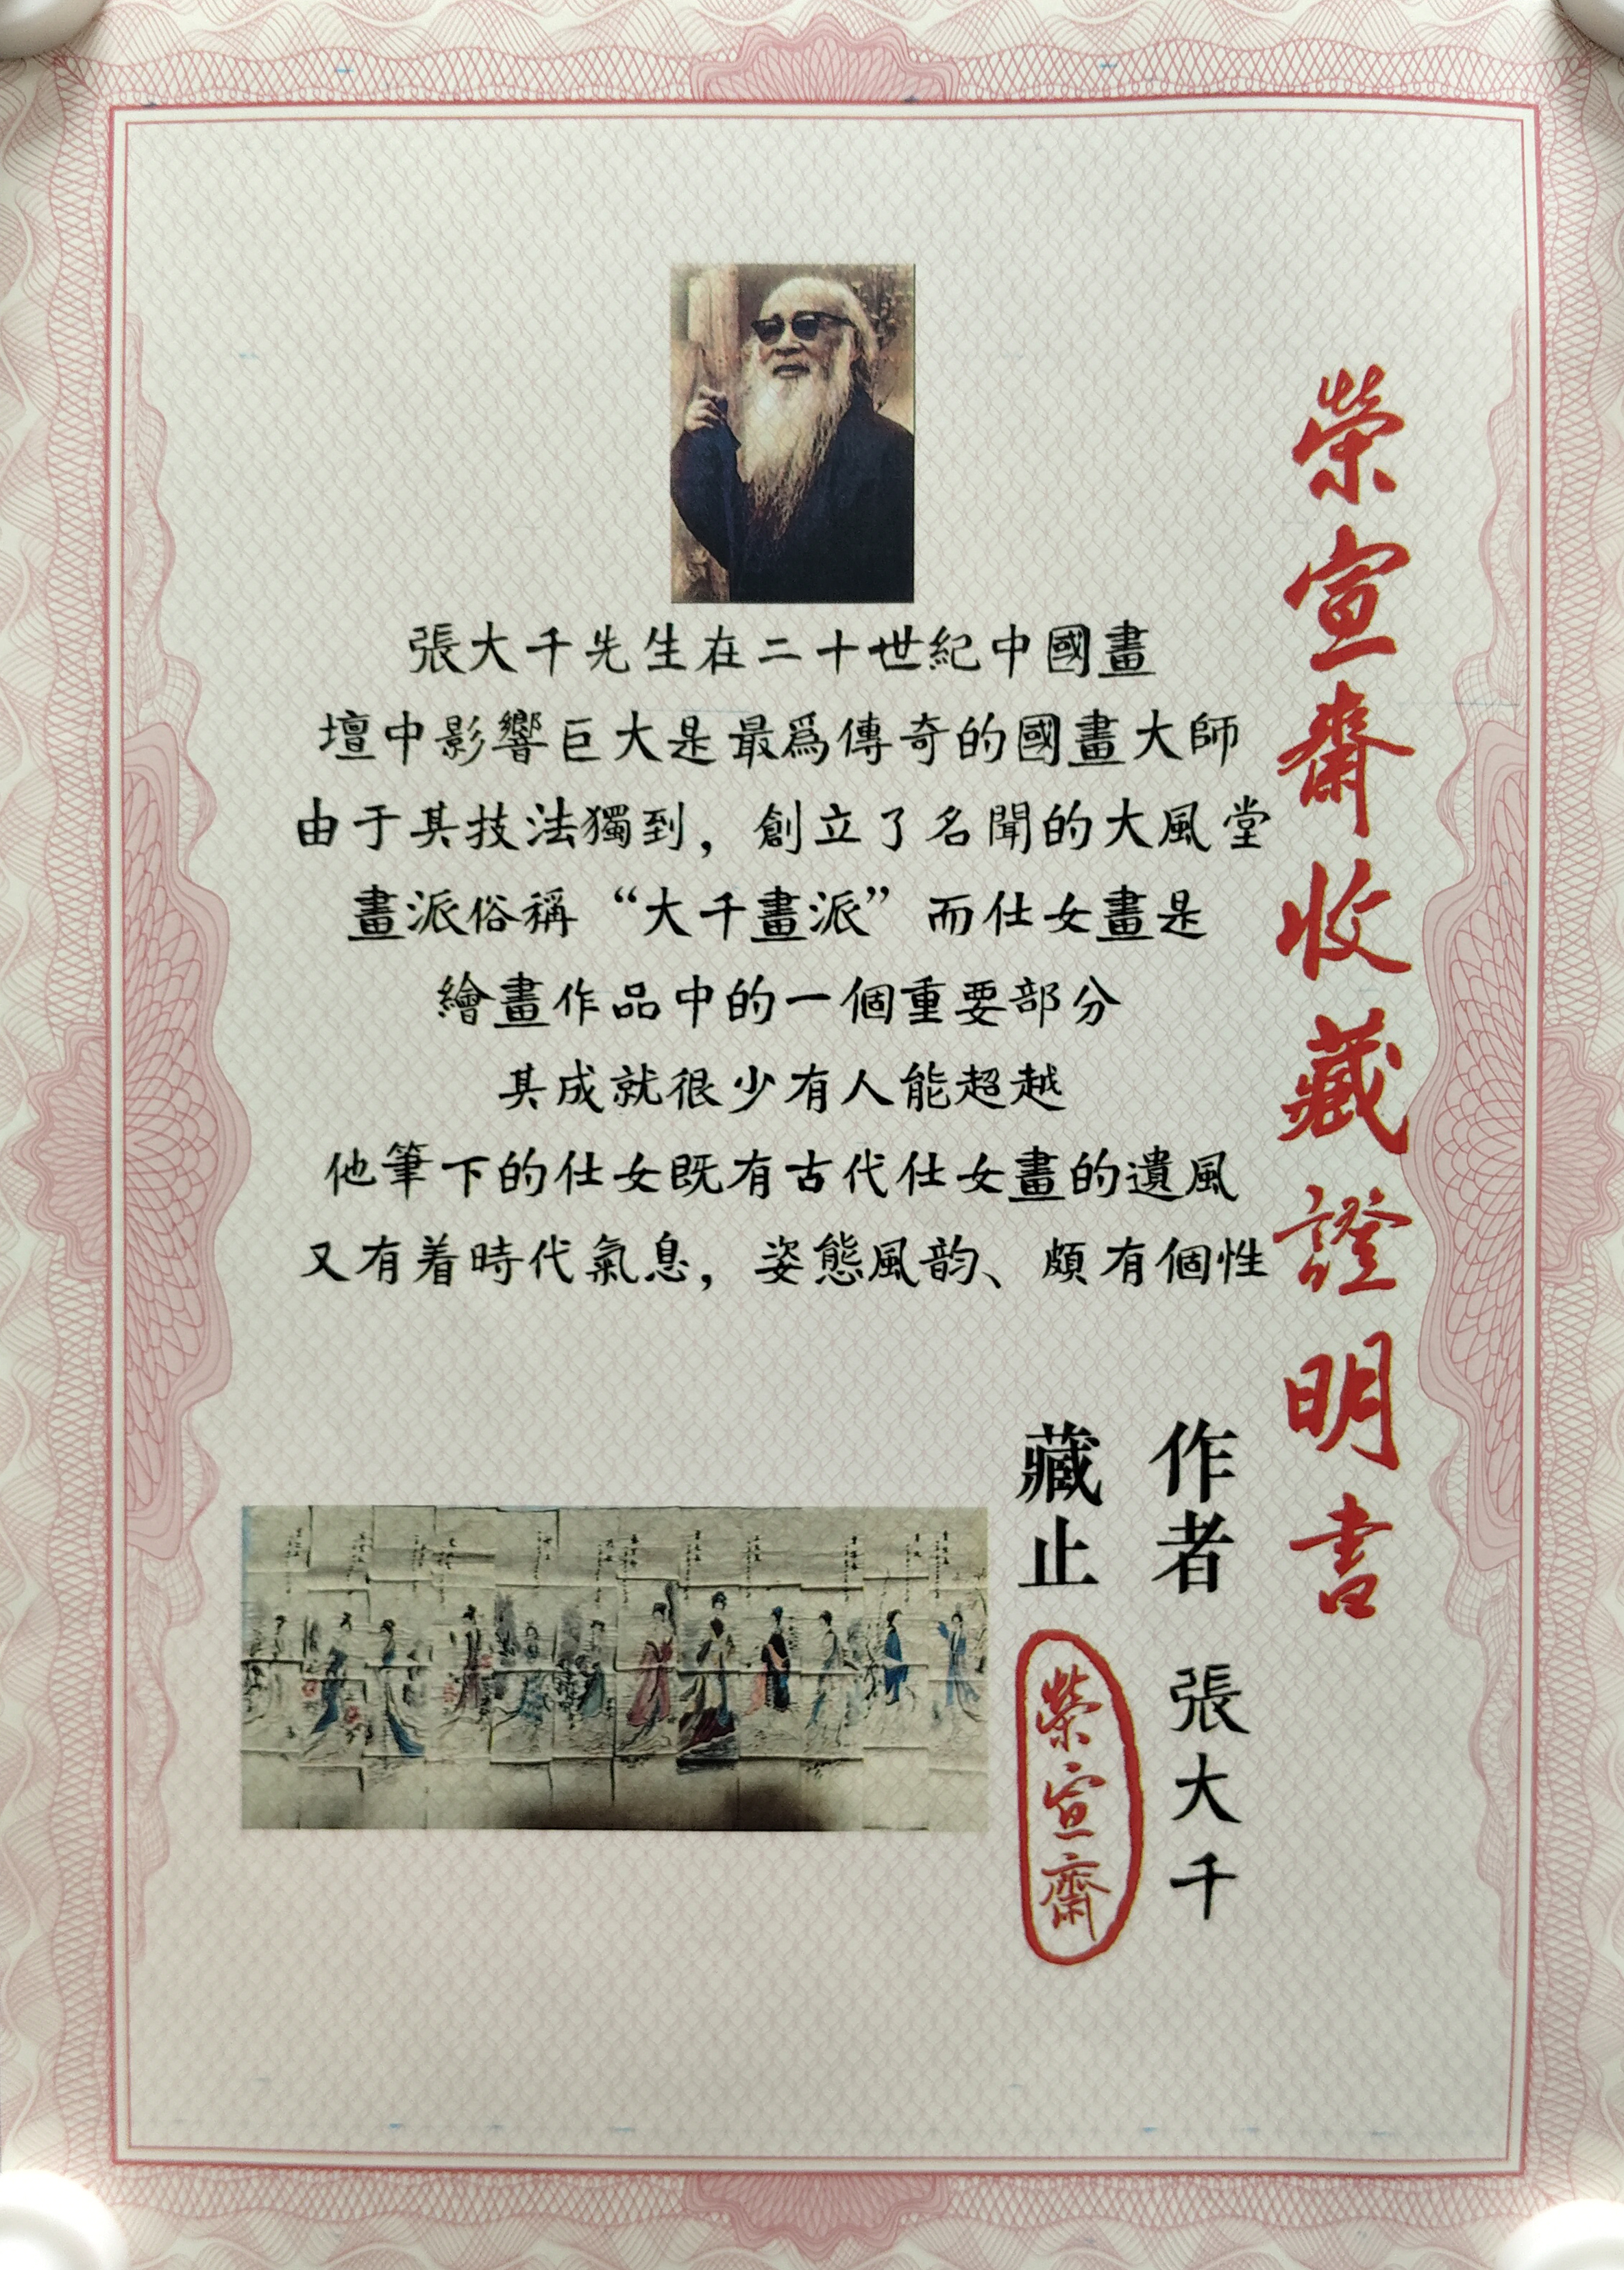 榮宣齋收藏證明書
張大千先生在二十世紀中國畫
壇中影響巨大是最爲傳奇的國畫大師
由于其技法獨到，創立了名聞的大風堂
畫派俗稱“大千畫派”而仕女畫是
繪畫作品中的一個重要部分
其成就很少有人能超越
他筆下的仕女既有古代仕女畫的遺風
又有着時代氣息，姿態風韵、頗有個性
作者 張大千
藏止 榮宣齋